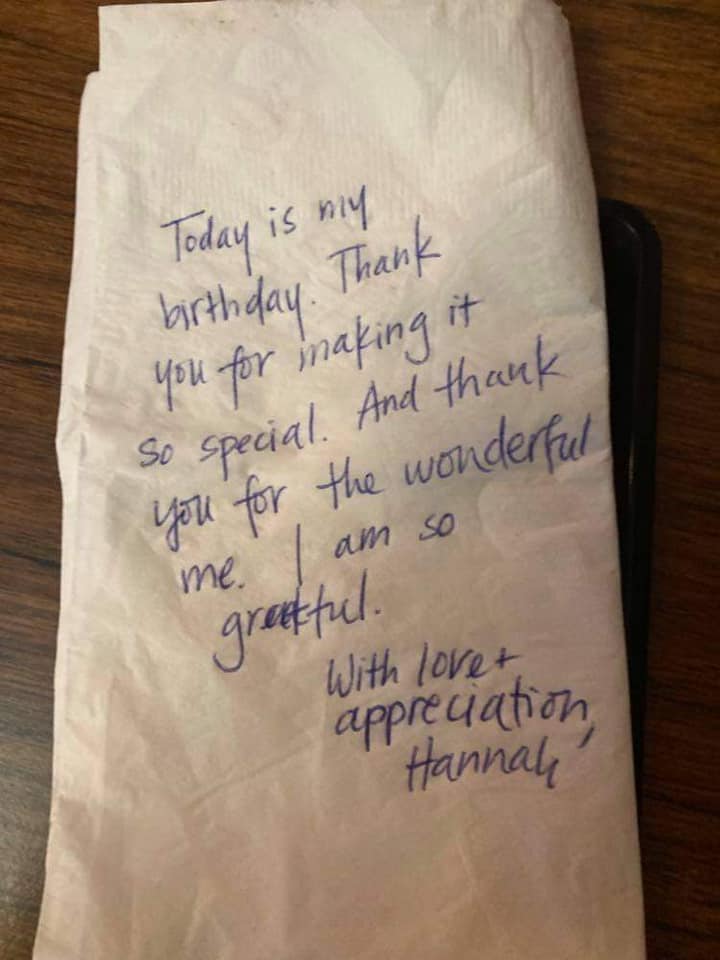 Today is my
birthday. Thank
you for making it
so special. And thank
you for the wonderful
me. I am so
grateful.
With love +
appreciation,
Hannah